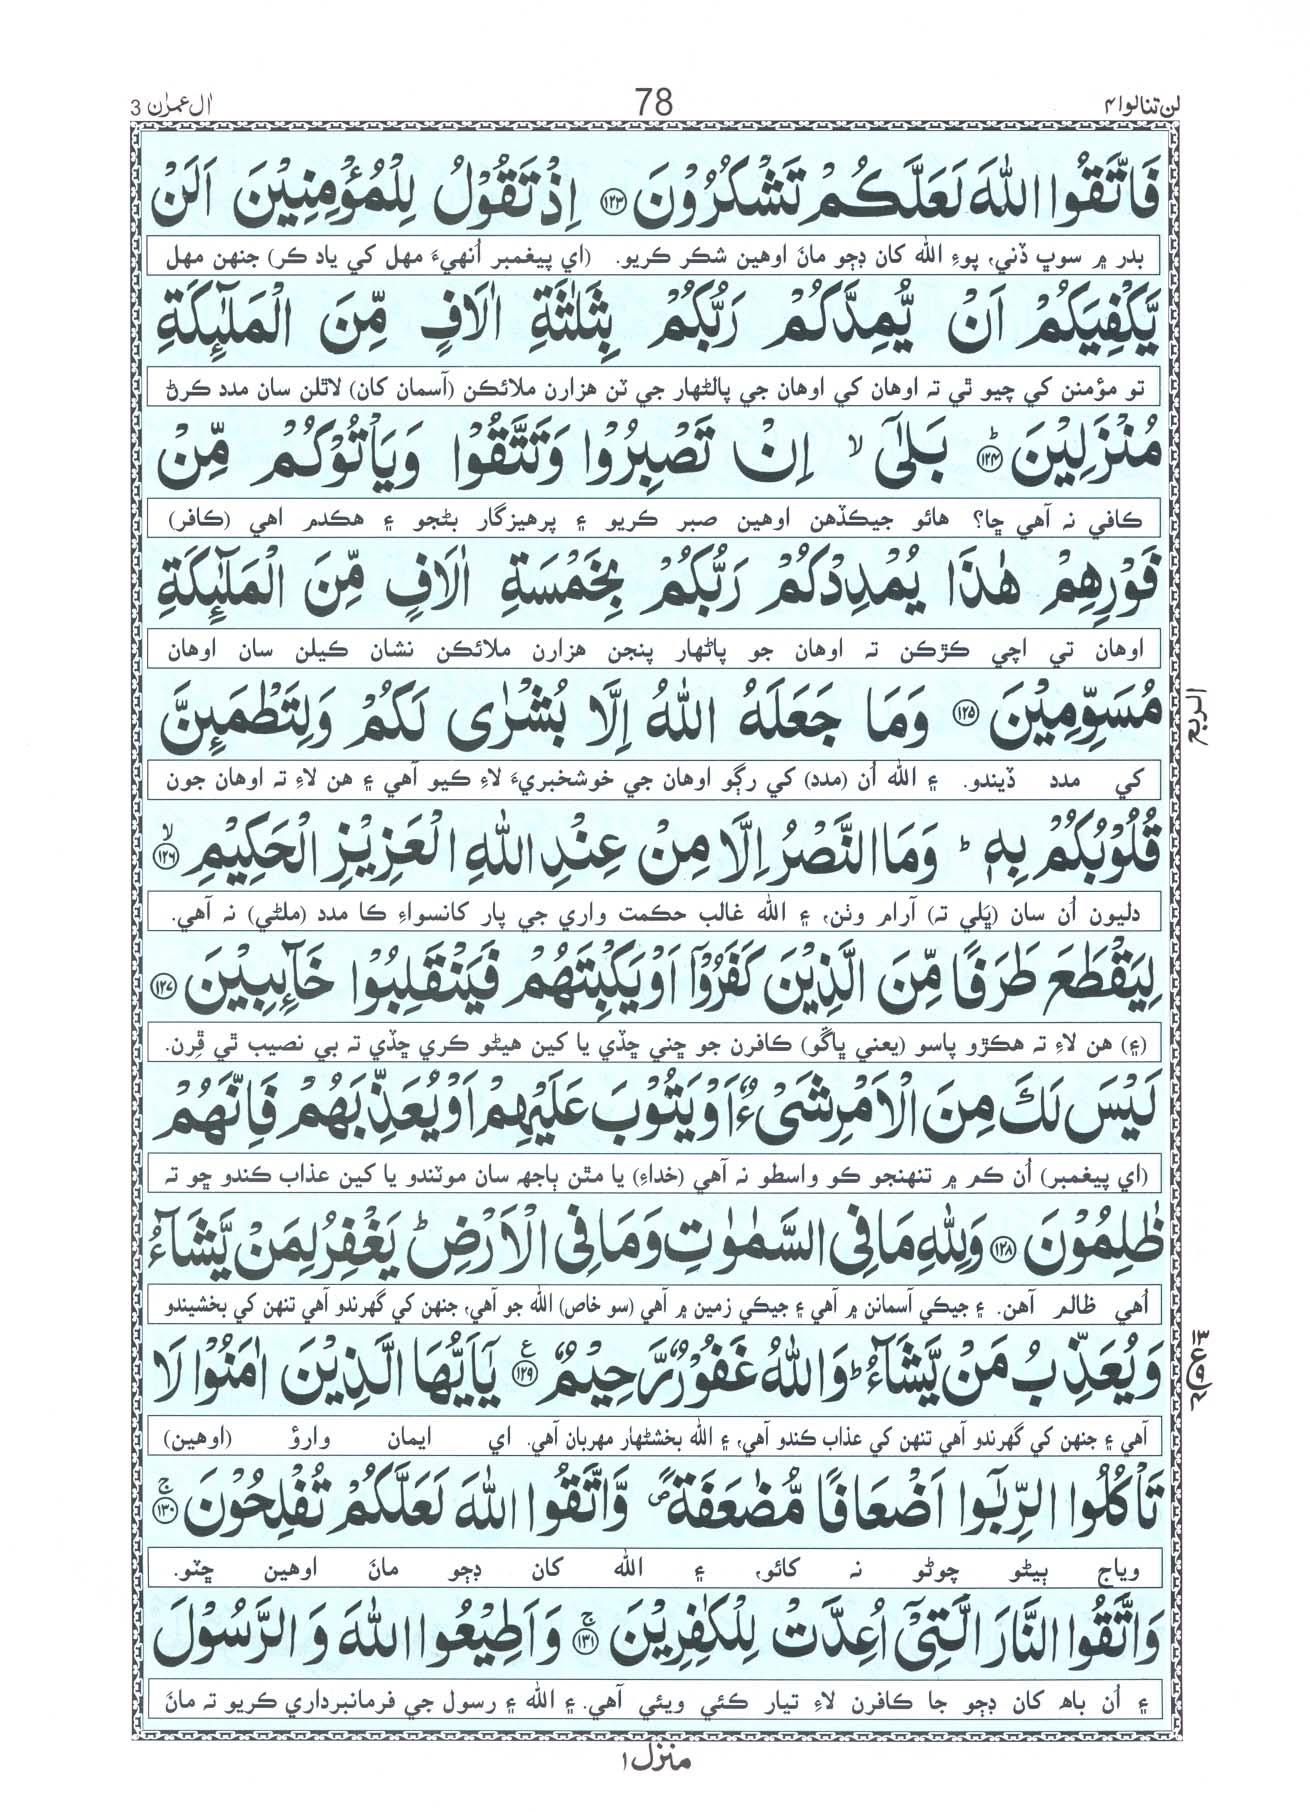 لن تنالوا ۴
78
اٰل عمرٰن 3
فَاتَّقُوا اللّٰهَ لَعَلَّكُمْ تَشْكُرُوْنَ ﴿۱۲۳﴾ اِذْ تَقُوْلُ لِلْمُؤْمِنِيْنَ اَلَنْ
بدر ۾ سوڀ ڏني، پوءِ الله کان ڊڄو مانَ اوهين شڪر ڪريو. (اي پيغمبر اُنهيءَ مهل کي ياد ڪر) جنهن مهل
يَّكْفِيَكُمْ اَنْ يُّمِدَّكُمْ رَبُّكُمْ بِثَلٰثَةِ اٰلَافٍ مِّنَ الْمَلٰٓئِكَةِ
تو مؤمنن کي چيو ٿي ته اوهان کي اوهان جي پالڻهار جي ٽن هزارن ملائڪن (آسمان کان) لاٿلن سان مدد ڪرڻ
مُنْزَلِيْنَ ﴿۱۲۴﴾ؕ بَلٰٓى ۙ اِنْ تَصْبِرُوْا وَتَتَّقُوْا وَيَاْتُوْكُمْ مِّنْ
ڪافي نه آهي ڇا؟ هائو جيڪڏهن اوهين صبر ڪريو ۽ پرهيزگار بڻجو ۽ هڪدم اهي (ڪافر)
فَوْرِهِمْ هٰذَا يُمْدِدْكُمْ رَبُّكُمْ بِخَمْسَةِ اٰلَافٍ مِّنَ الْمَلٰٓئِكَةِ
اوهان تي اچي ڪڙڪن ته اوهان جو پاڻهار پنجن هزارن ملائڪن نشان ڪيلن سان اوهان
مُسَوِّمِيْنَ ﴿۱۲۵﴾ وَمَا جَعَلَهُ اللّٰهُ اِلَّا بُشْرٰى لَكُمْ وَلِتَطْمَئِنَّ
کي مدد ڏيندو. ۽ الله اُن (مدد) کي رڳو اوهان جي خوشخبريءَ لاءِ ڪيو آهي ۽ هن لاءِ ته اوهان جون
قُلُوْبُكُمْ بِهٖ ؕ وَمَا النَّصْرُ اِلَّا مِنْ عِنْدِ اللّٰهِ الْعَزِيْزِ الْحَكِيْمِ ﴿۱۲۶﴾ۙ
دليون اُن سان (ڀَلي ته) آرام وٺن، ۽ الله غالب حڪمت واري جي پار کانسواءِ ڪا مدد (ملڻي) نه آهي.
لِيَقْطَعَ طَرَفًا مِّنَ الَّذِيْنَ كَفَرُوْٓا اَوْ يَكْبِتَهُمْ فَيَنْقَلِبُوْا خَآئِبِيْنَ ﴿۱۲۷﴾
(۽) هن لاءِ ته هڪڙو پاسو (يعني ڀاڱو) ڪافرن جو ڇني ڇڏي يا کين هيڻو ڪري ڇڏي ته بي نصيب ٿي ڦِرن.
لَيْسَ لَكَ مِنَ الْاَمْرِ شَىْءٌ اَوْ يَتُوْبَ عَلَيْهِمْ اَوْ يُعَذِّبَهُمْ فَاِنَّهُمْ
(اي پيغمبر) اُن ڪم ۾ تنهنجو ڪو واسطو نه آهي (خداءِ) يا مٿن ٻاجهہ سان موٽندو يا کين عذاب ڪندو ڇو ته
ظٰلِمُوْنَ ﴿۱۲۸﴾ وَلِلّٰهِ مَا فِى السَّمٰوٰتِ وَمَا فِى الْاَرْضِ ؕ يَغْفِرُ لِمَنْ يَّشَآءُ
اُهي ظالم آهن. ۽ جيڪي آسمانن ۾ آهي ۽ جيڪي زمين ۾ آهي (سو خاص) الله جو آهي، جنهن کي گهرندو آهي تنهن کي بخشيندو
وَيُعَذِّبُ مَنْ يَّشَآءُ ؕ وَاللّٰهُ غَفُوْرٌ رَّحِيْمٌ ﴿۱۲۹﴾ع يٰٓاَيُّهَا الَّذِيْنَ اٰمَنُوْا لَا
آهي ۽ جنهن کي گهرندو آهي تنهن کي عذاب ڪندو آهي، ۽ الله بخشڻهار مهربان آهي. اي ايمان وارؤ (اوهين)
تَاْكُلُوا الرِّبٰٓوا اَضْعَافًا مُّضٰعَفَةً ۪ وَّاتَّقُوا اللّٰهَ لَعَلَّكُمْ تُفْلِحُوْنَ ﴿۱۳۰﴾ۚ
وياج ٻيڻو چوڻو نه کائو، ۽ الله کان ڊڄو مانَ اوهين ڇٽو.
وَاتَّقُوا النَّارَ الَّتِىْٓ اُعِدَّتْ لِلْكٰفِرِيْنَ ﴿۱۳۱﴾ۚ وَاَطِيْعُوا اللّٰهَ وَالرَّسُوْلَ
۽ اُن باهہ کان ڊڄو جا ڪافرن لاءِ تيار ڪئي ويئي آهي. ۽ الله ۽ رسول جي فرمانبرداري ڪريو ته مانَ
الربع
منزل ۱